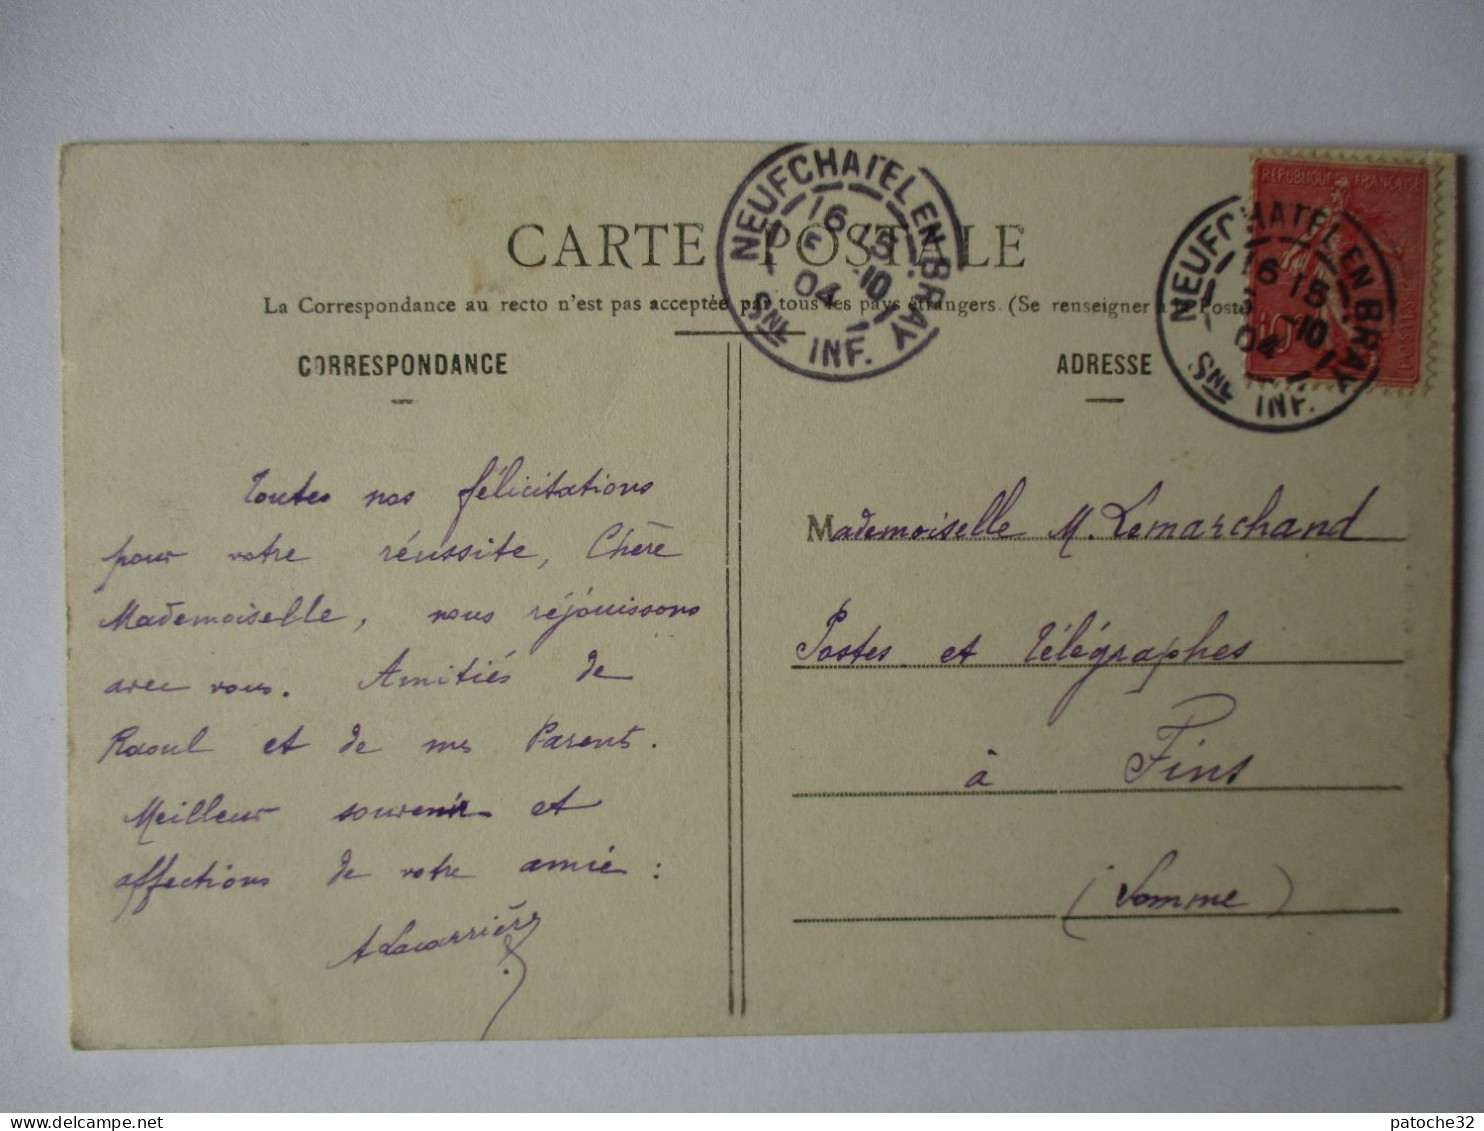 CARTE POSTALE
La Correspondance au recto n'est pas acceptée par tous les pays étrangers. (Se renseigner à la Poste
CORRESPONDANCE
Toutes nos félicitations
pour votre réussite, Chère
Mademoiselle, nous réjouissons
avec vous. Amitiés de
Raoul et de mes Parents.
Meilleur souvenir et
affections de votre amie :
A Lacarrière
ADRESSE
Mademoiselle M. Lemarchand
Postes et Télégraphes
à Fins
(Somme)
NEUFCHATEL EN BRAY
16 15
5 10
04
SNE INF.
REPUBLIQUE FRANÇAISE
10
POSTES
NEUFCHATEL EN BRAY
16 15
10
04
SNE INF.
patoche32